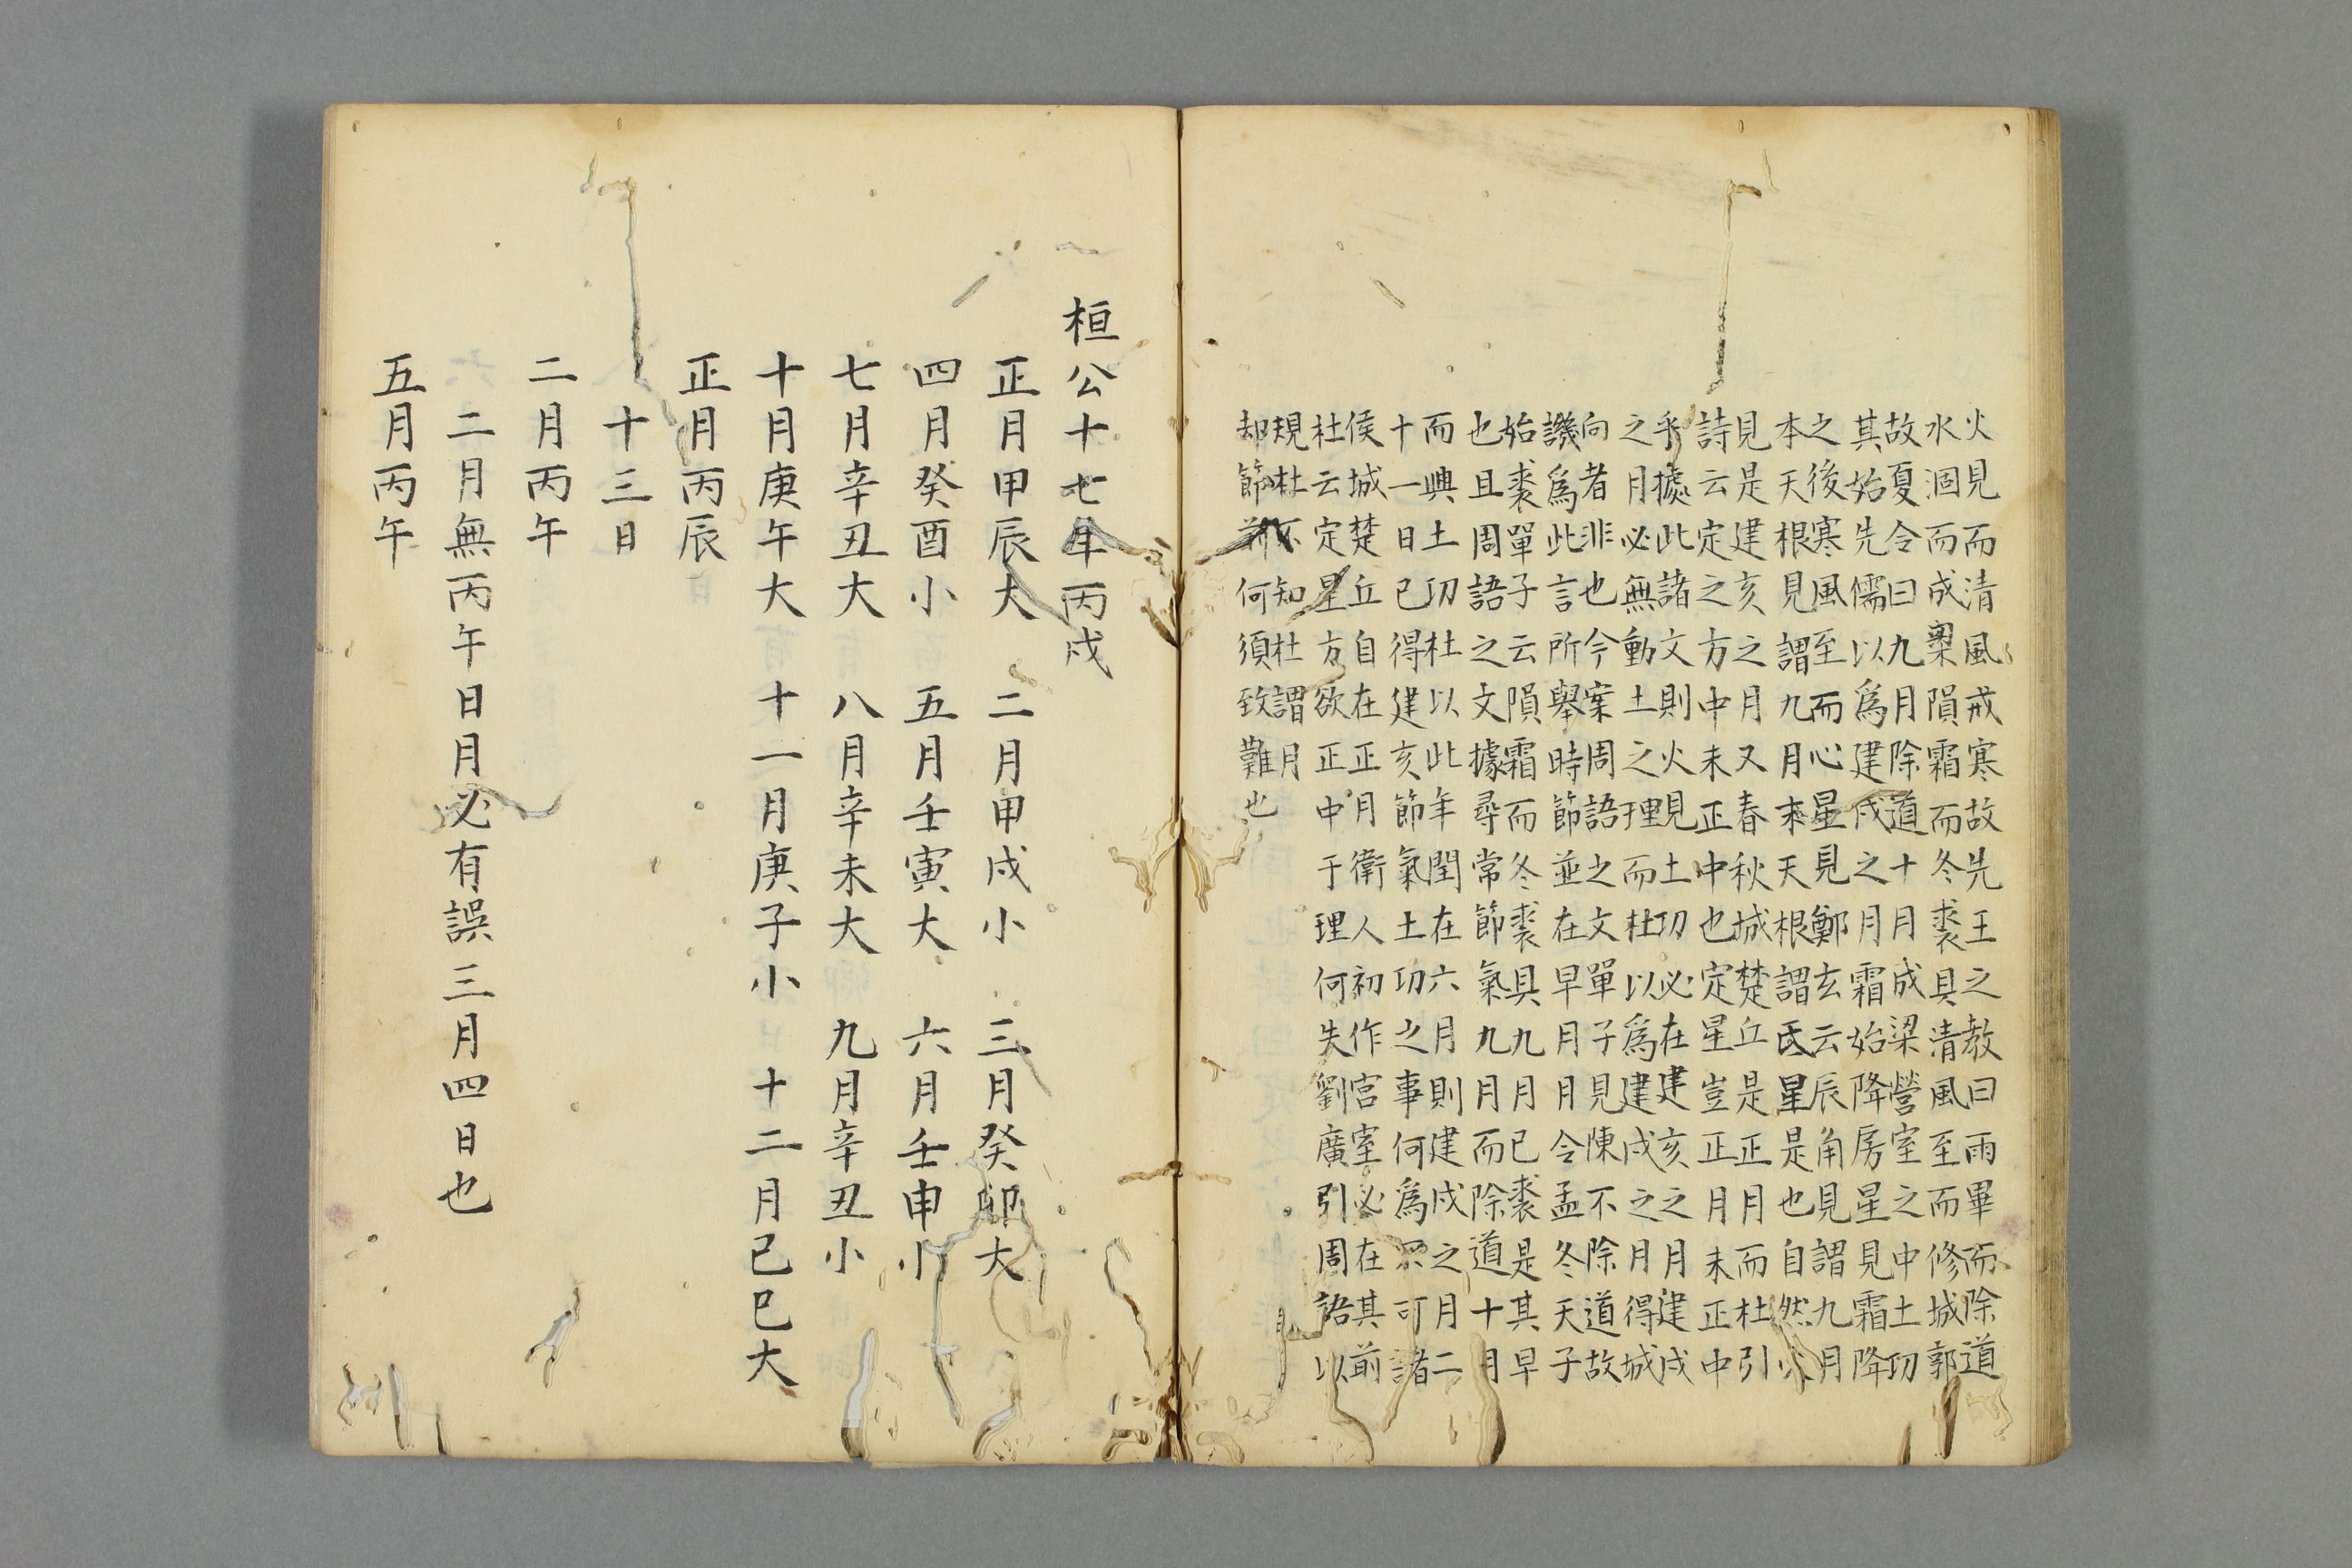 火見而清風戒寒故先王之教曰雨畢而除道
水涸而成梁隕霜而冬裘具清風至而修城郭
故夏令曰九月除道十月成梁營室之中土功
其始先儒以為建戌之月霜始降房星見霜降
之後寒風至而心星見鄭玄云辰角見謂九月
本天根見謂九月末天根謂氐星是也自然
見是建亥之月又春秋城楚丘是正月而杜引
詩云定之方中未正中也定星豈正月未正中
乎據此諸文則火見土功必在建亥之月建戌
之月必無動土之理而杜以為建戌之月得城
向者非也今案周語之文單子見陳不除道故
譏為此言所舉時節並在早月月令孟冬天子
始裘單子云隕霜而冬裘具九月已裘是其早
也且周語之文據尋常節氣九月而除道十月
而興土功杜以此年閏在六月則建戌之月二
十一日已得建亥節氣土功之事何為不可諸
侯城楚丘自在正月衛人初作宮室必在其前
杜云定星方欲正中于理何失劉廣引周語以
規杜不知杜謂月
却節前何須致難也
桓公十七年丙戌
正月甲辰大 二月甲戌小 三月癸卯大
四月癸酉小 五月壬寅大 六月壬申小
七月辛丑大 八月辛未大 九月辛丑小
十月庚午大 十一月庚子小 十二月己巳大
正月丙辰
十三日
二月丙午
二月無丙午日月必有誤三月四日也
五月丙午